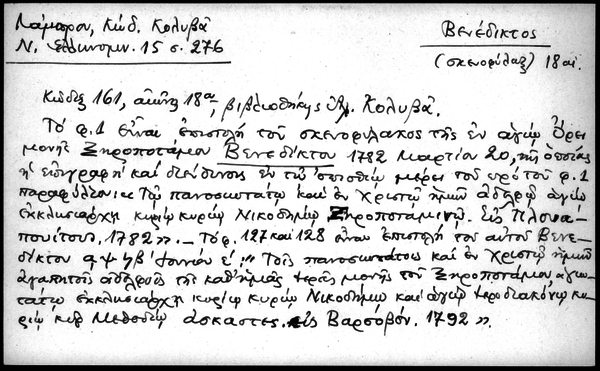 Λάμπρου, Κώδ. Κολυβᾶ
Βενέδικτος
Ν. Ἑλληνομν. 15 σ. 276
(σκευοφύλαξ) 18 αἰ.
Κῶδιξ 161, αἰῶνος 18ου, βιβλιοθήκης Ἀλ. Κολυβᾶ.
Τὸ φ. 1 εἶναι ἐπιστολὴ τοῦ σκευοφύλακος τῆς ἐν ἁγίῳ Ὄρει
μονῆς Ξηροποτάμου Βενεδίκτου 1782 Μαρτίου 20, τῆς ὁποίας
ἡ ἐπιγραφὴ καὶ διεύθυνσις ἐν τῷ ὄπισθεν μέρει τοῦ αὐτοῦ φ. 1
παραφύλλου: "Τῷ πανοσιωτάτῳ καὶ ἐν Χριστῷ ἡμῶν ἀδελφῷ ἁγίῳ
ἐκκλησιάρχῃ κυρίῳ κυρῷ Νικοδήμῳ Ξηροποταμινῷ. Εἰς Πελοπο-
πονίτσου, 1782". — Τὸ φ. 127 καὶ 128 εἶναι ἐπιστολὴ τοῦ αὐτοῦ Βενε-
δίκτου αψϟβ' Ἰουνίου ε', "Τοῖς πανοσιωτάτοις καὶ ἐν Χριστῷ ἡμῶν
ἀγαπητοῖς ἀδελφοῖς τῆς καθ' ἡμᾶς ἱερᾶς μονῆς τοῦ Ξηροποτάμου, ἁγιω-
τάτῳ ἐκκλησιάρχῃ κυρίῳ κυρῷ Νικοδήμῳ καὶ ἁγίῳ ἱεροδιακόνῳ κυ-
ρίῳ κυρ Μεθοδίῳ ἀσκαστες. εἰς Βαρσοβόν. 1792".